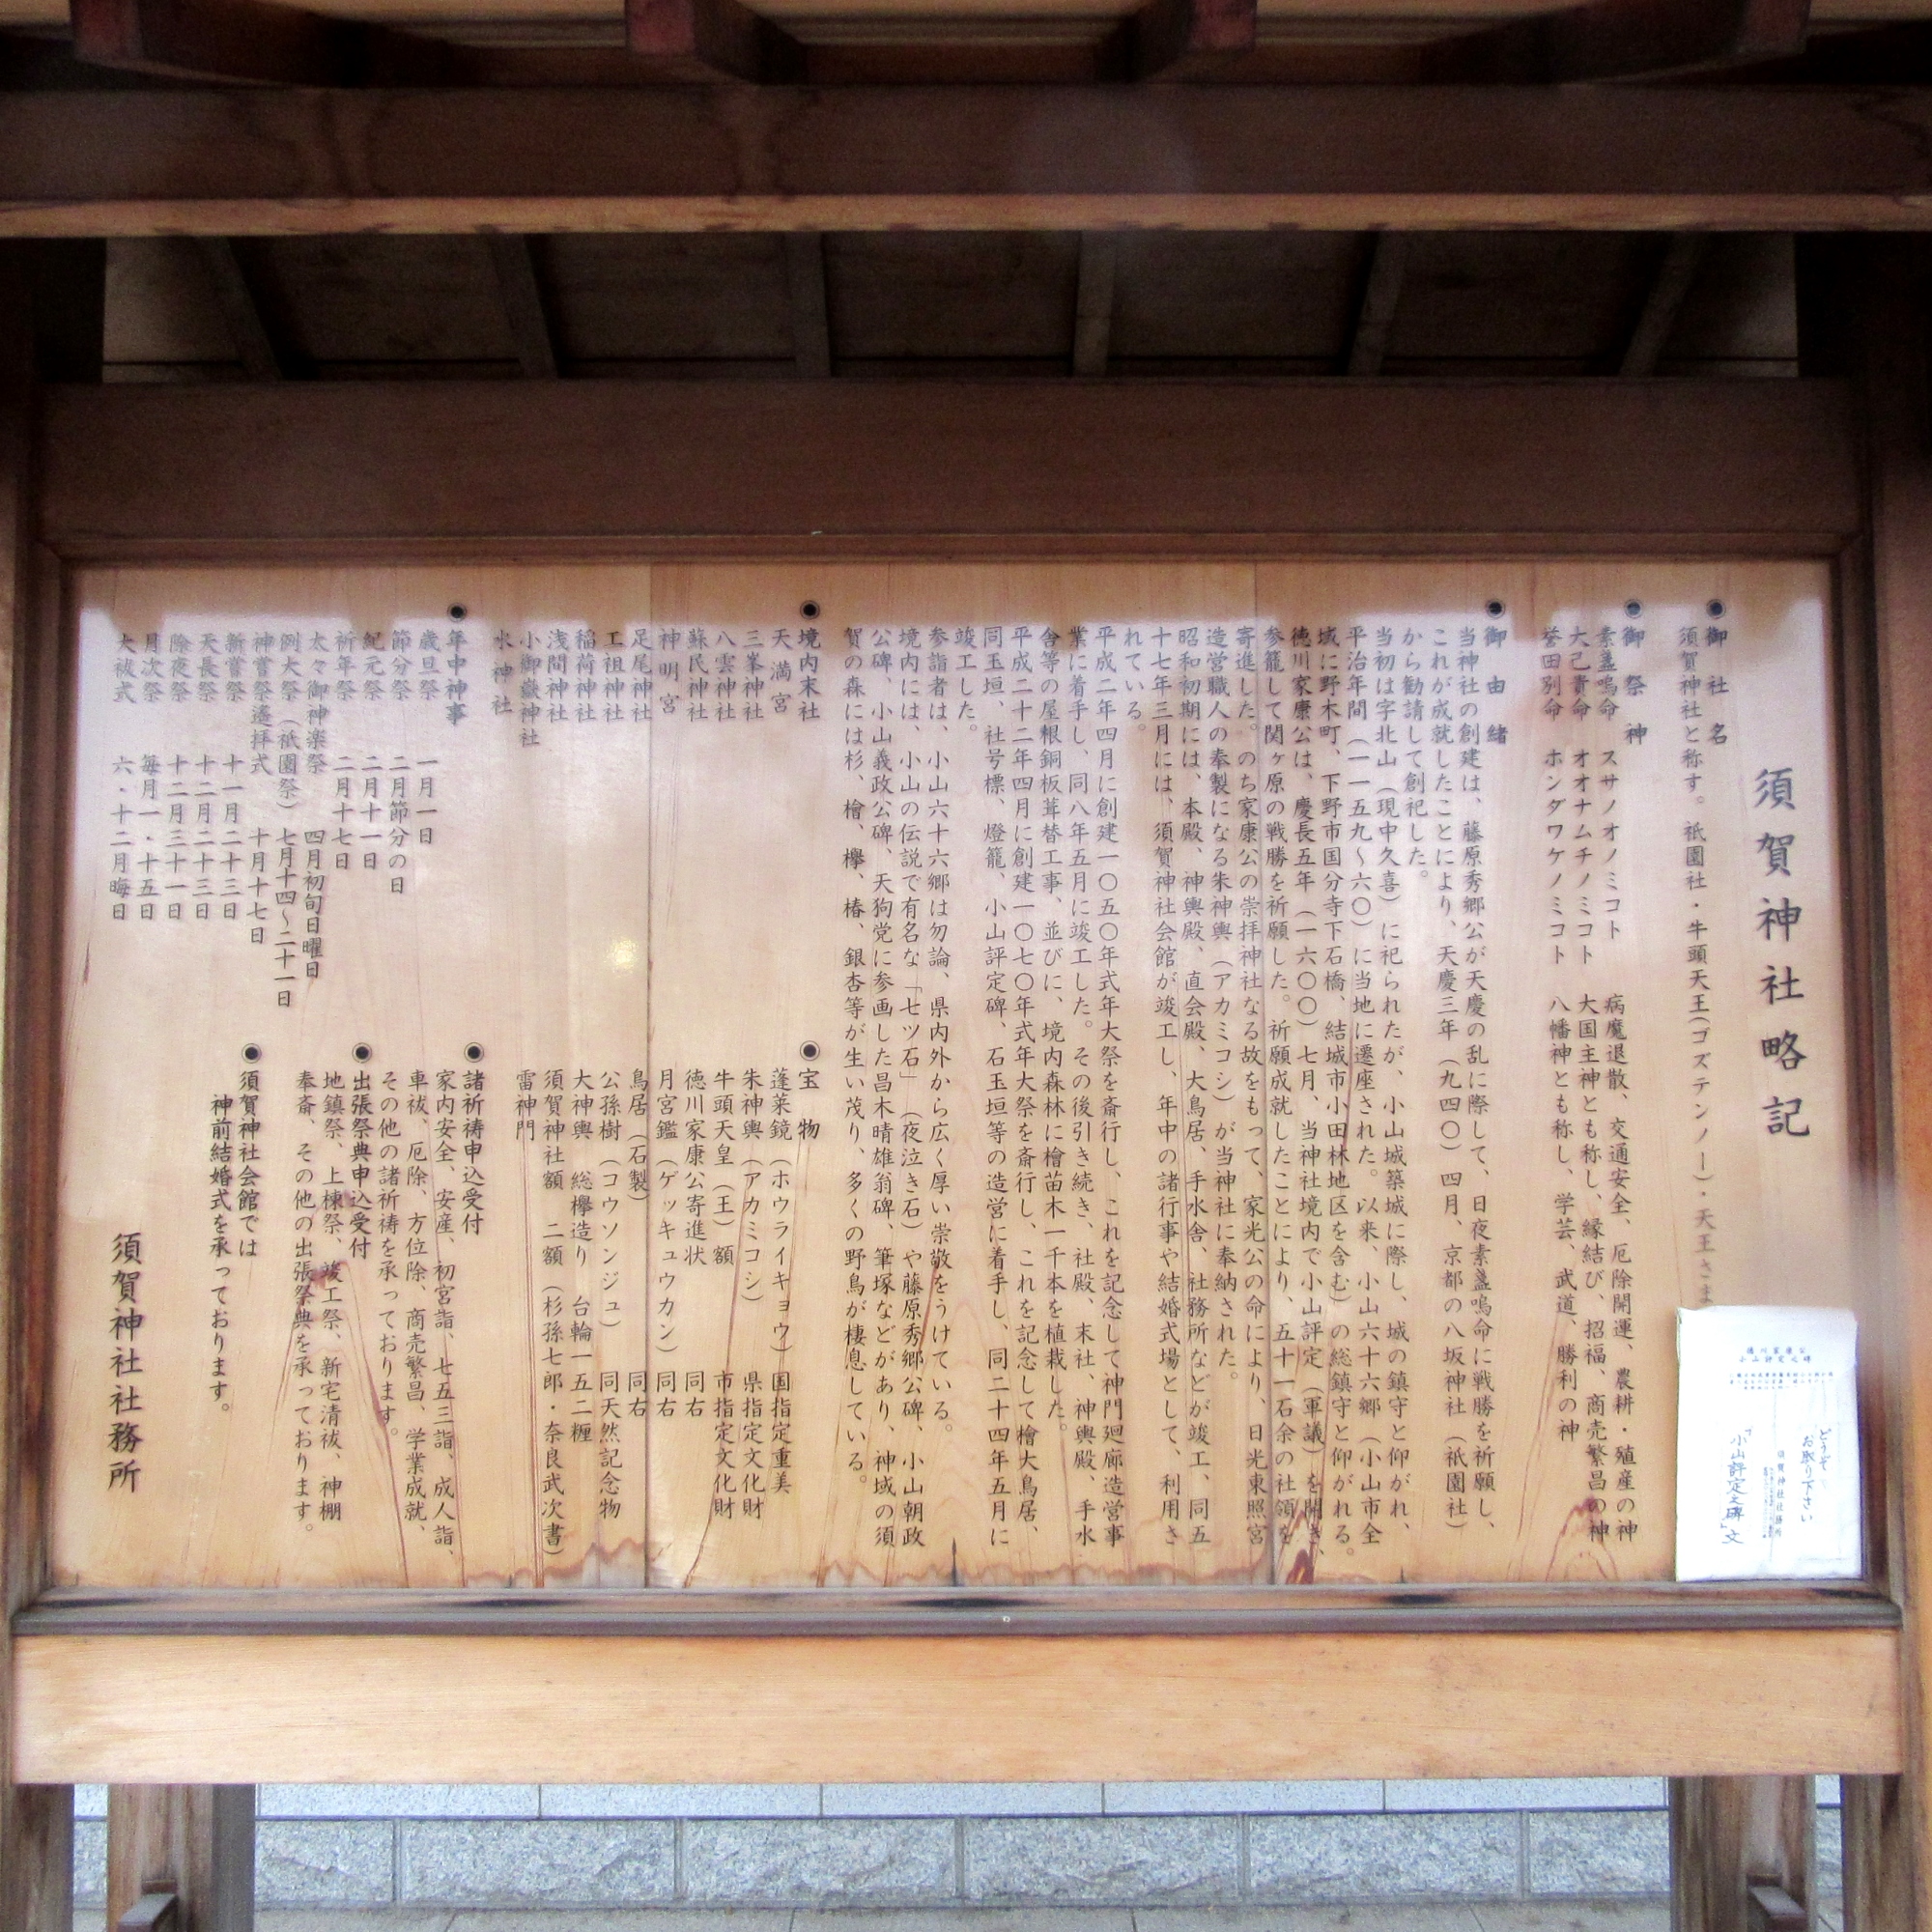 須賀神社略記
●御社名
須賀神社と称す。祇園社・牛頭天王(ゴズテンノー)・天王さま
●御祭神
素盞嗚命 スサノオノミコト 病魔退散、交通安全、厄除開運、農耕・殖産の神
大己貴命 オオナムチノミコト 大国主神とも称し、縁結び、招福、商売繁昌の神
誉田別命 ホンダワケノミコト 八幡神とも称し、学芸、武道、勝利の神
●御由緒
当神社の創建は、藤原秀郷公が天慶の乱に際して、日夜素盞嗚命に戦勝を祈願し、
これが成就したことにより、天慶三年(九四〇)四月、京都の八坂神社(祇園社)
から勧請して創祀した。
当初は字北山(現中久喜)に祀られたが、小山城築城に際し、城の鎮守と仰がれ、
平治年間(一一五九～六〇)に当地に遷座された。以来、小山六十六郷(小山市全
域に野木町、下野市国分寺下石橋、結城市小田林地区を含む)の総鎮守と仰がれる。
徳川家康公は、慶長五年(一六〇〇)七月、当神社境内で小山評定(軍議)を開き、
参籠して関ヶ原の戦勝を祈願した。祈願成就したことにより、五十一石余の社領を
寄進した。のち家康公の崇拝神社なる故をもって、家光公の命により、日光東照宮
造営職人の奉製になる朱神輿(アカミコシ)が当神社に奉納された。
昭和初期には、本殿、神輿殿、直会殿、大鳥居、手水舎、社務所などが竣工、同五
十七年三月には、須賀神社会館が竣工し、年中の諸行事や結婚式場として、利用さ
れている。
平成二年四月に創建一〇五〇年式年大祭を斎行し、これを記念して神門廻廊造営事
業に着手し、同八年五月に竣工した。その後引き続き、社殿、末社、神輿殿、手水
舎等の屋根銅板葺替工事、並びに、境内森林に檜苗木一千本を植栽した。
平成二十二年四月に創建一〇七〇年式年大祭を斎行し、これを記念して檜大鳥居、
同玉垣、社号標、燈籠、小山評定碑、石玉垣等の造営に着手し、同二十四年五月に
竣工した。
参詣者は、小山六十六郷は勿論、県内外から広く厚い崇敬をうけている。
境内には、小山の伝説で有名な「七ツ石」(夜泣き石)や藤原秀郷公碑、小山朝政
公碑、小山義政公碑、天狗党に参画した昌木晴雄翁碑、筆塚などがあり、神域の須
賀の森には杉、檜、欅、椿、銀杏等が生い茂り、多くの野鳥が棲息している。
●境内末社
天満宮
三峯神社
八雲神社
蘇民神社
神明宮
足尾神社
工祖神社
稲荷神社
浅間神社
小御嶽神社
水神社
●宝物
蓬莱鏡(ホウライキョウ) 国指定重美
朱神輿(アカミコシ) 県指定文化財
牛頭天皇(王)額 市指定文化財
徳川家康公寄進状 同右
月宮鑑(ゲッキュウカン) 同右
鳥居(石製) 同右
公孫樹(コウソンジュ) 同天然記念物
大神輿 総欅造り 台輪一五二糎
須賀神社額 二額(杉孫七郎・奈良武次書)
雷神門
●年中神事
歳旦祭 一月一日
節分祭 二月節分の日
紀元祭 二月十一日
祈年祭 二月十七日
太々御神楽祭 四月初旬日曜日
例大祭(祇園祭) 七月十四～二十一日
神嘗祭遙拝式 十月十七日
新嘗祭 十一月二十三日
天長祭 十二月二十三日
除夜祭 十二月三十一日
月次祭 毎月一・十五日
大祓式 六・十二月晦日
●諸祈祷申込受付
家内安全、安産、初宮詣、七五三詣、成人詣、
車祓、厄除、方位除、商売繁昌、学業成就、
その他の諸祈祷を承っております。
●出張祭典申込受付
地鎮祭、上棟祭、竣工祭、新宅清祓、神棚
奉斎、その他の出張祭典を承っております。
●須賀神社会館では
神前結婚式を承っております。
須賀神社社務所
徳川家康公
小山評定之碑
どうぞ
お取り下さい
「小山評定之碑」文